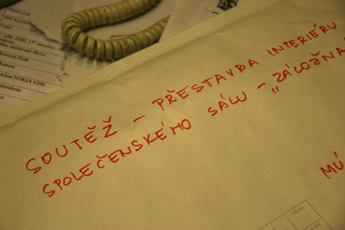 SOUTĚŽ - PŘESTAVBA INTERIÉRU
SPOLEČENSKÉHO SÁLU - „ZÁLOŽNA
MÚ